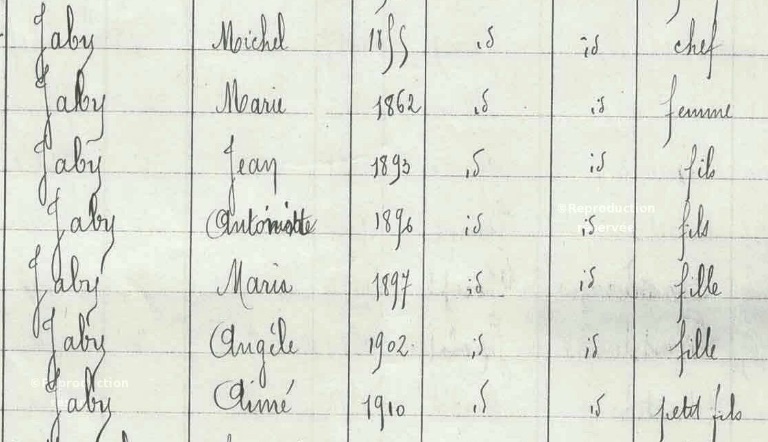 Jaby Michel 1855 id id chef
Jaby Marie 1862 id id femme
Jaby Jean 1893 id id fils
Jaby 1896 id id fils
Jaby Maria 1897 id id fille
Jaby Angèle 1902 id id fille
Jaby Aimé 1910 id id petit fils